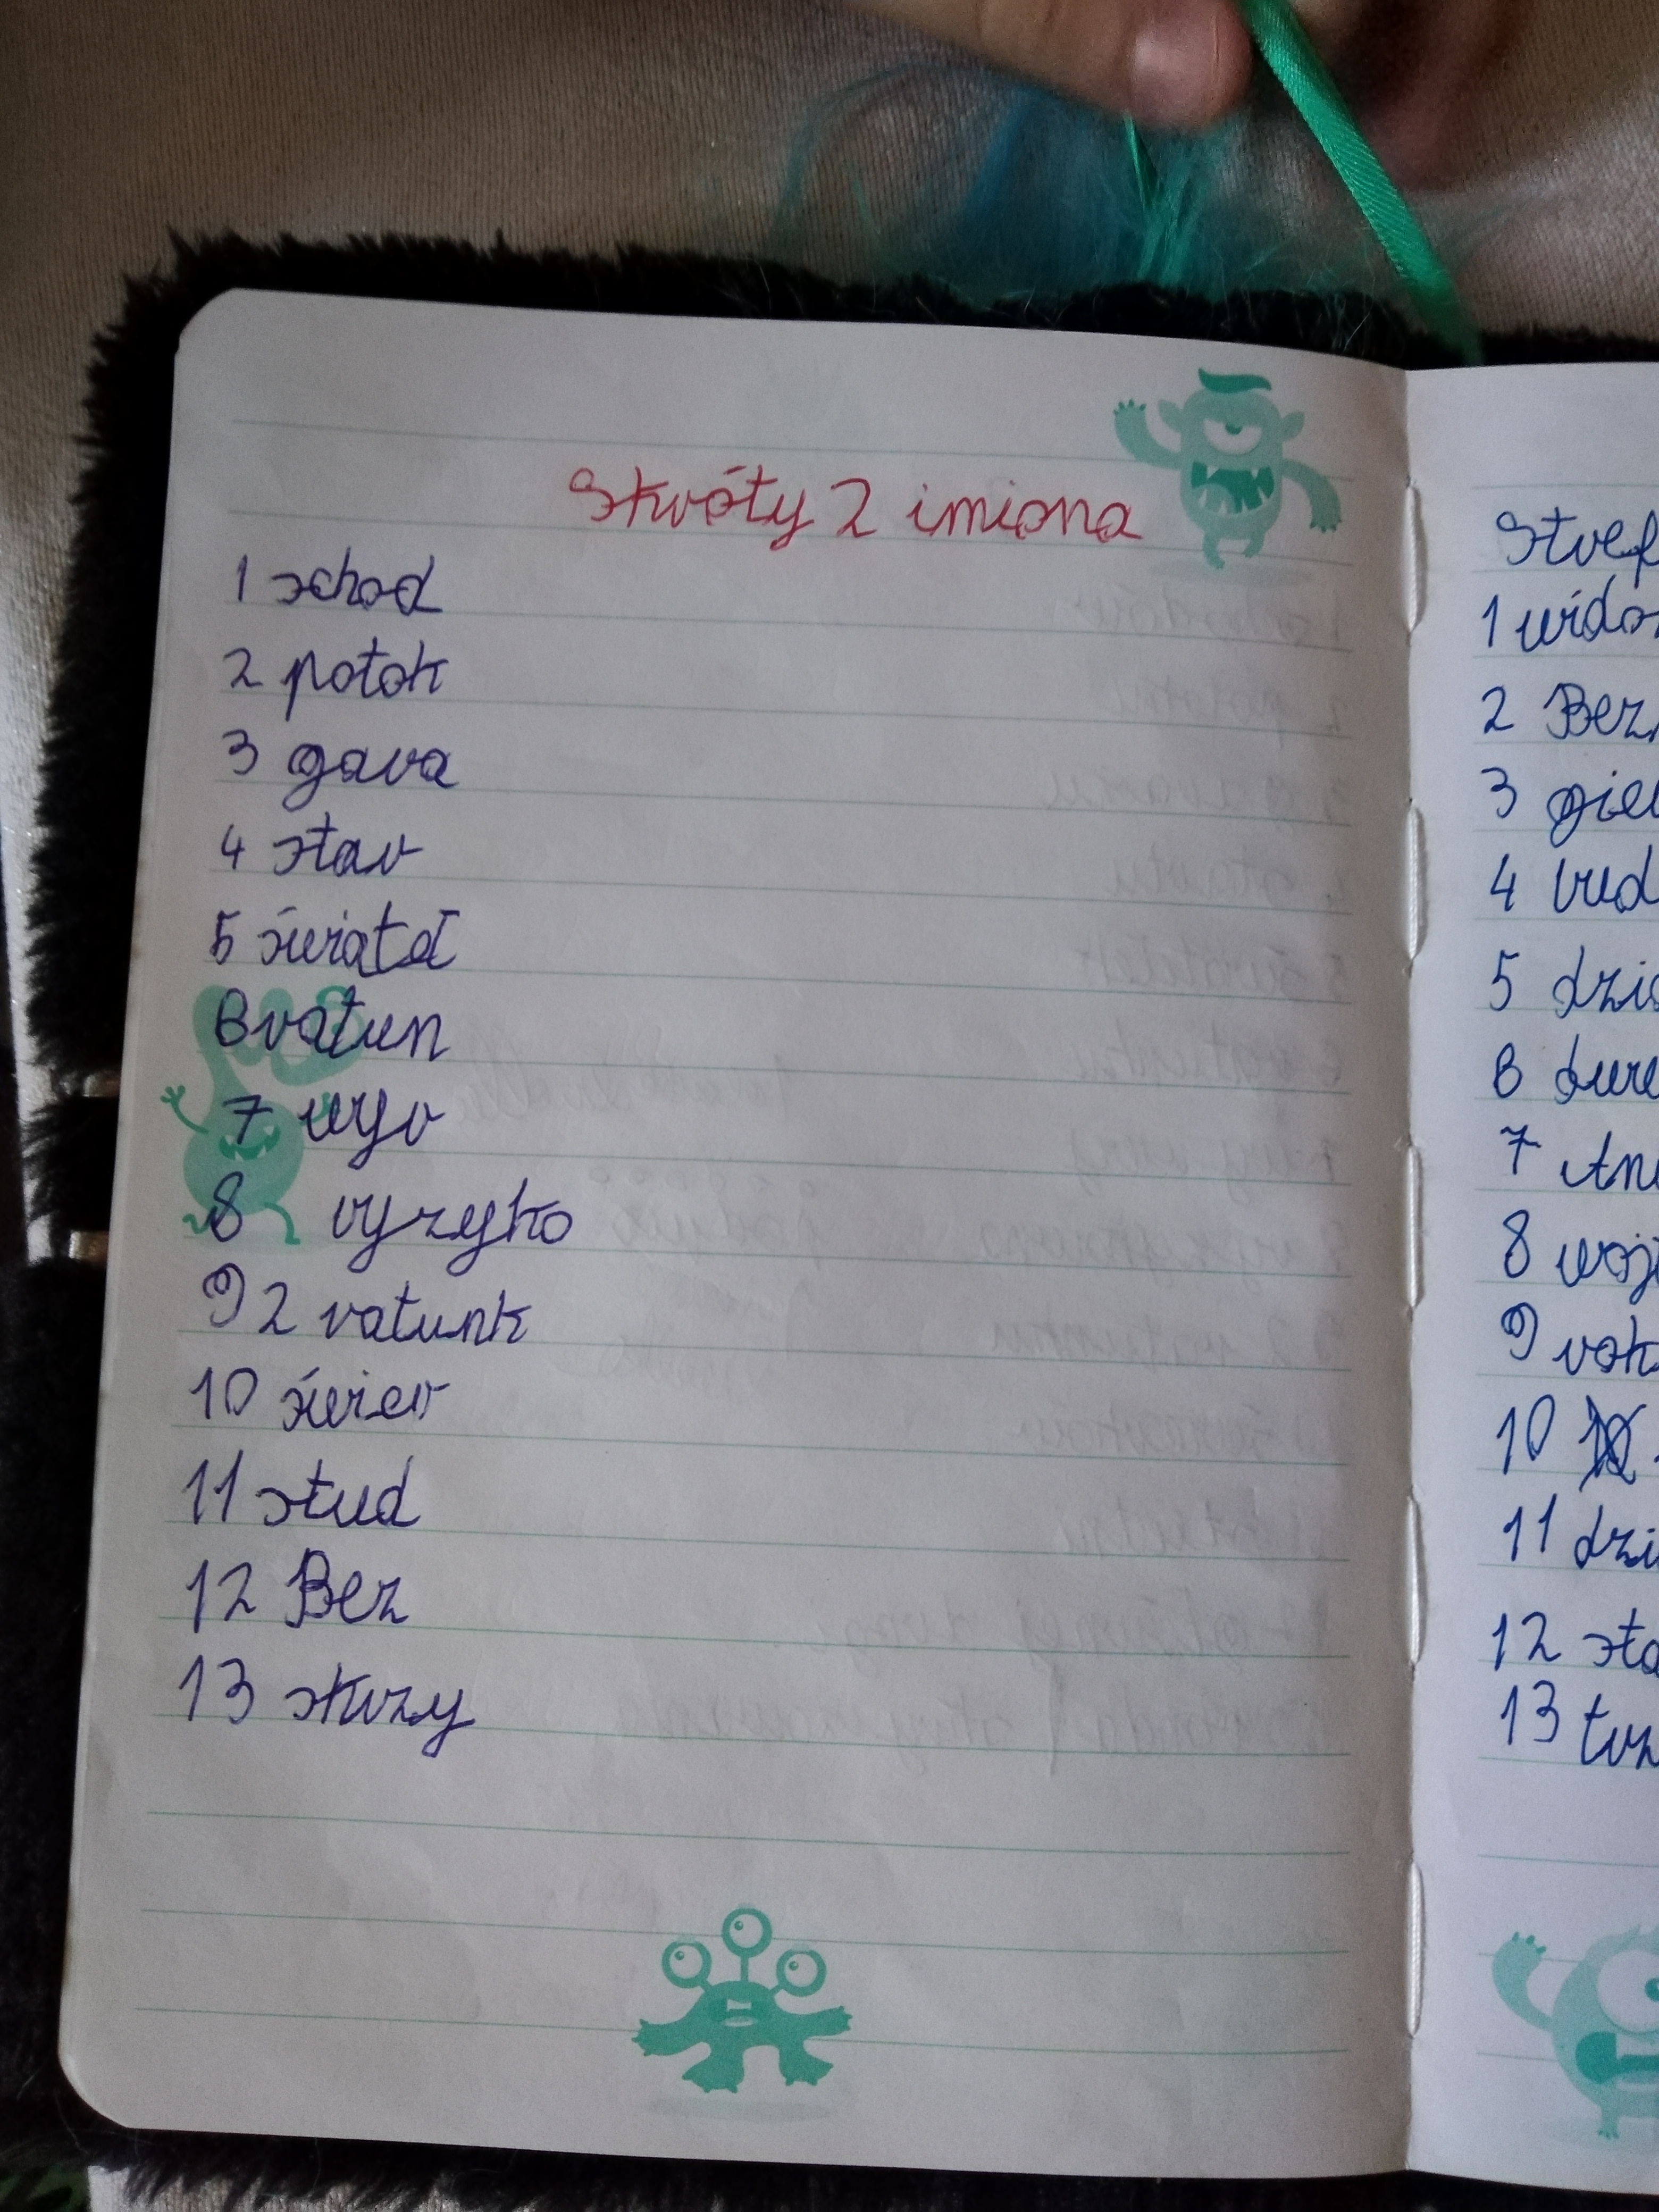 Skróty 2 imiona
1 schod
2 potok
3 gara
4 star
5
6 ratun
7 wyr
8 ryzyko
9 2 ratunk
10 świer
11 stud
12 Bez
13 skrzy
Stref
1 wido
2 Bez
3 giel
4 rud
5 dzi
6
7
8 woj
9 rok
10
11 dzi
12 sta
13 trz